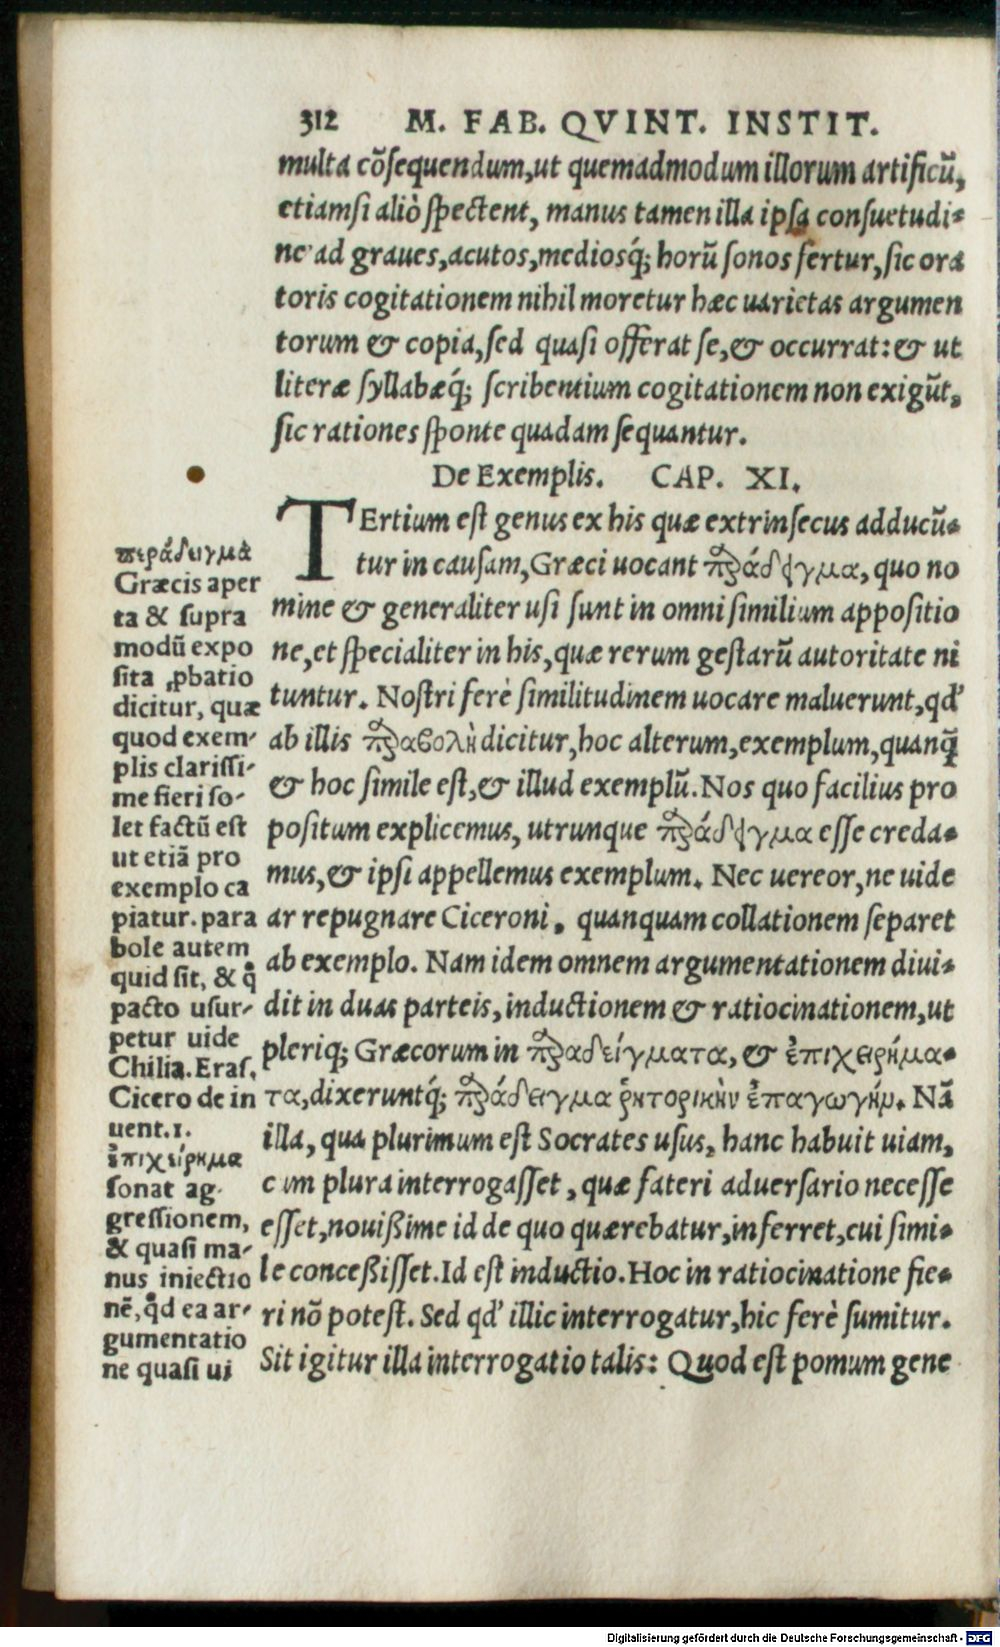 312 M. FAB. QVINT. INSTIT.
multa cõsequendum,ut quemadmodum illorum artificũ,
etiamsi aliò spectent, manus tamen illa ipsa consuetudi-
ne ad graues,acutos,mediosq́; horũ sonos fertur,sic ora
toris cogitationem nihil moretur hæc uarietas argumen
torum & copia,sed quasi offerat se,& occurrat:& ut
literæ syllabæq́; scribentium cogitationem non exigũt,
sic rationes sponte quadam sequantur.
De Exemplis. CAP. XI.
TErtium est genus ex his quæ extrinsecus adducũ-
tur in causam,Græci uocant παράδειγμα,quo no
mine & generaliter usi sunt in omni similium appositio
ne,et specialiter in his,quæ rerum gestarũ autoritate ni
tuntur. Nostri ferè similitudinem uocare maluerunt,qd'
ab illis παραβολὴ dicitur,hoc alterum,exemplum,quanq̃
& hoc simile est,& illud exemplũ. Nos quo facilius pro
positum explicemus, utrunque παράδειγμα esse creda-
mus,& ipsi appellemus exemplum. Nec uereor,ne uide
ar repugnare Ciceroni, quanquam collationem separet
ab exemplo. Nam idem omnem argumentationem diui-
dit in duas parteis,inductionem & ratiocinationem,ut
pleriq; Græcorum in παραδείγματα, & ἐπιχειρήμα-
τα,dixeruntq́; παράδειγμα ῥητορικὴν ἐπαγωγήν. Nã
illa, qua plurimum est Socrates usus, hanc habuit uiam,
cum plura interrogasset, quæ fateri aduersario necesse
esset,nouißime id de quo quærebatur,inferret,cui simi-
le conceßisset.Id est inductio.Hoc in ratiocinatione fie-
ri nõ potest. Sed qd' illic interrogatur,hic ferè sumitur.
Sit igitur illa interrogatio talis: Quod est pomum gene
περάδειγμὰ
Græcis aper
ta & supra
modũ expo
sita ꝓbatio
dicitur, quæ
quod exem-
plis clarissi-
me fieri so-
let factũ est
ut etiã pro
exemplo ca
piatur. para
bole autem
quid sit, & q̊
pacto usur-
petur uide
Chilia. Eras.
Cicero de in
uent.1.
ἐπιχείρημα
sonat ag-
gressionem,
& quasi ma-
nus iniectio
nẽ, q̊d ea ar-
gumentatio
ne quasi ui
Digitalisierung gefördert durch die Deutsche Forschungsgemeinschaft - DFG